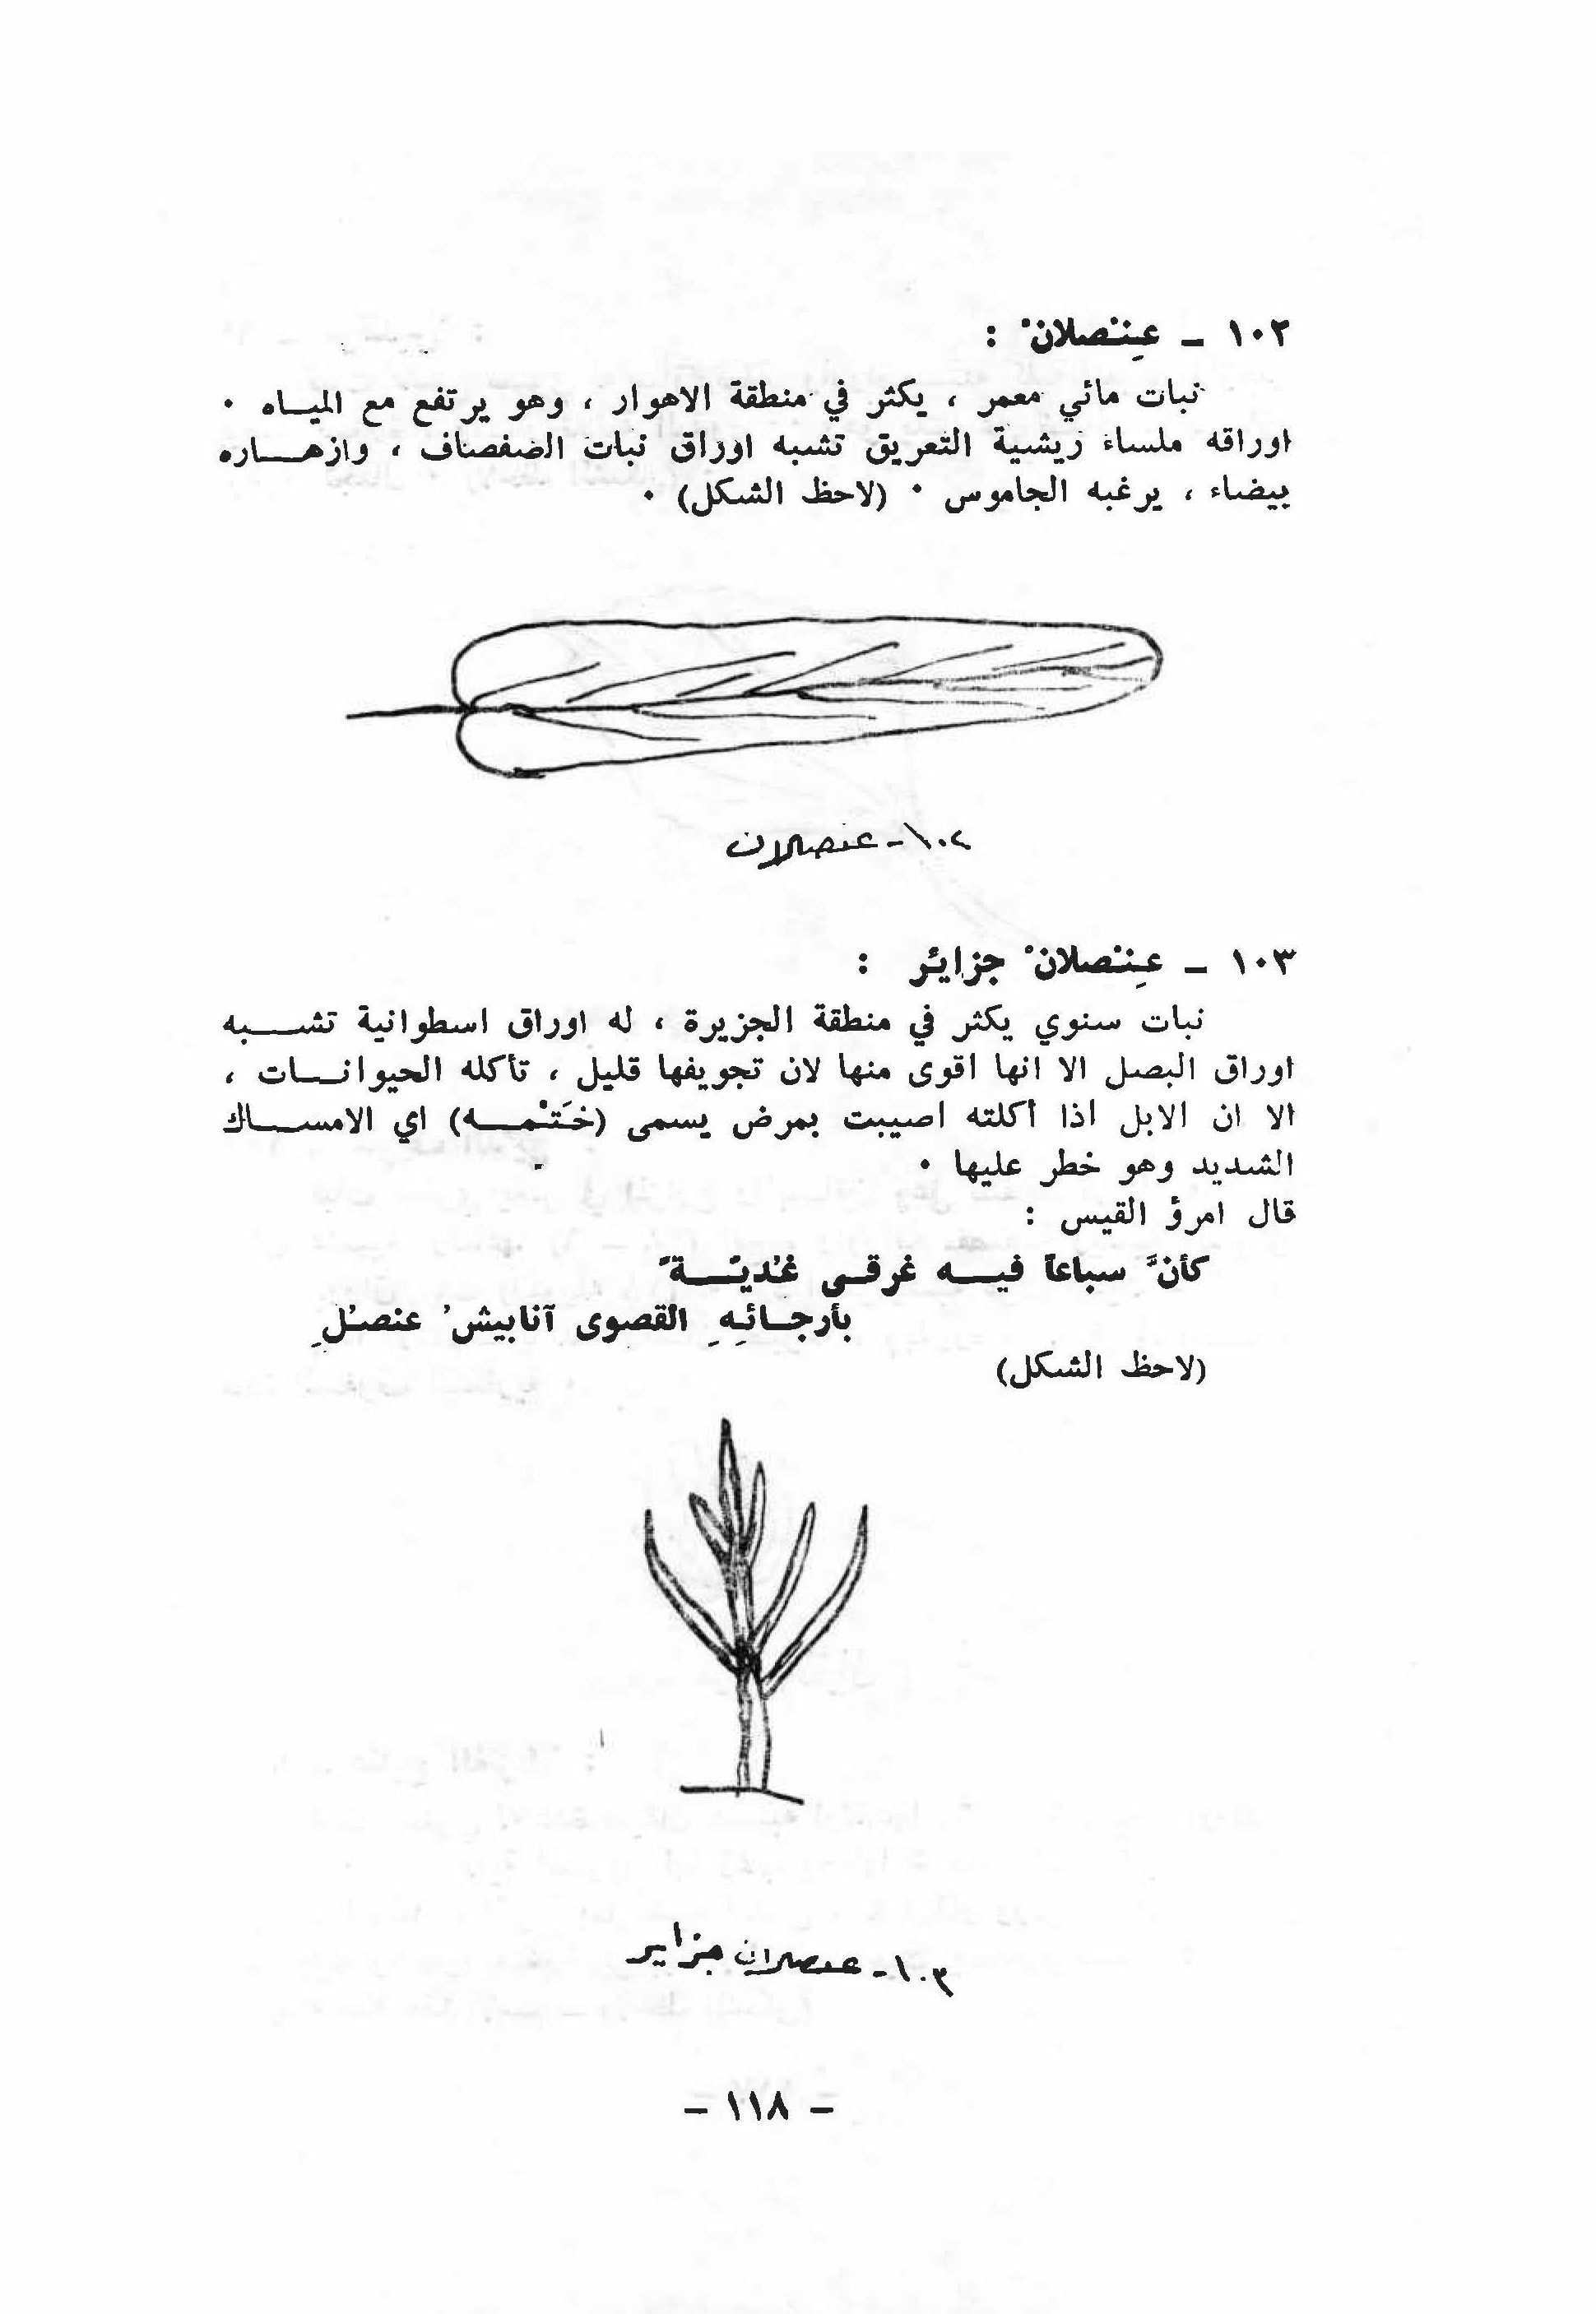 ١٠٢ - عِنْصلانْ :
نبات مائي معمر ، يكثر في منطقة الاهوار ، وهو يرتفع مع الميـاه ٠
اوراقه ملساء ريشية التعريق تشبه اوراق نبات الصفصاف ، وازهـــاره
بيضاء ، يرغبه الجاموس ٠ (لاحظ الشكل) ٠
١٠٢- عنصلان
١٠٣ - عِنْصلانْ جزايْر :
نبات سنوي يكثر في منطقة الجزيرة ، له اوراق اسطوانية تشـــبه
اوراق البصل الا انها اقوى منها لان تجويفها قليل ، تأكله الحيوانـــات ،
الا ان الابل اذا أكلته اصيبت بمرض يسمى (خَتْمـــه) اي الامســـاك
الشديد وهو خطر عليها ٠
قال امرؤ القيس :
كأنَّ سباعاً فيـــه غرقـى غُديّـــةً
بأرجـائِهِ القصوى آنابيشُ عنصُلِ
(لاحظ الشكل)
١٠٣- عنصلان جزاير
- ١١٨ -